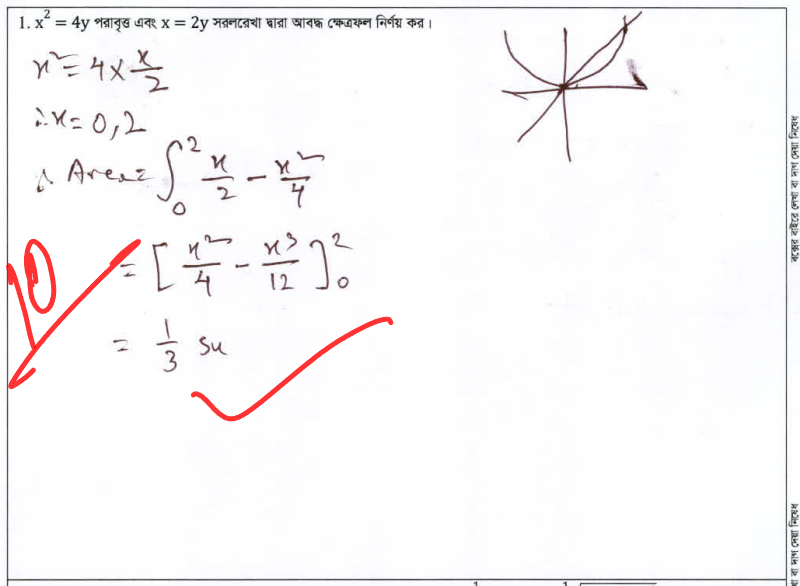 1. x² = 4y পরাবৃত্ত এবং x = 2y সরলরেখা দ্বারা আবদ্ধ ক্ষেত্রফল নির্ণয় কর।
x² = 4 × x/2
∴ x = 0, 2
∴ Area = ∫₀² x/2 − x²/4
= [x²/4 − x³/12]₀²
= 1/3 su
10
বক্সের বাইরে লেখা বা দাগ দেয়া নিষেধ
বা দাগ দেয়া নিষেধ